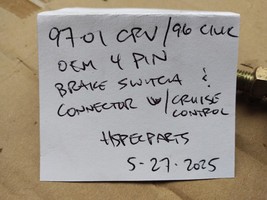 97-01 CRV/96 CIVIC
OEM 4 PIN
BRAKE SWITCH &
CONNECTOR W/CRUISE
CONTROL
HSPECPARTS
5-27-2025